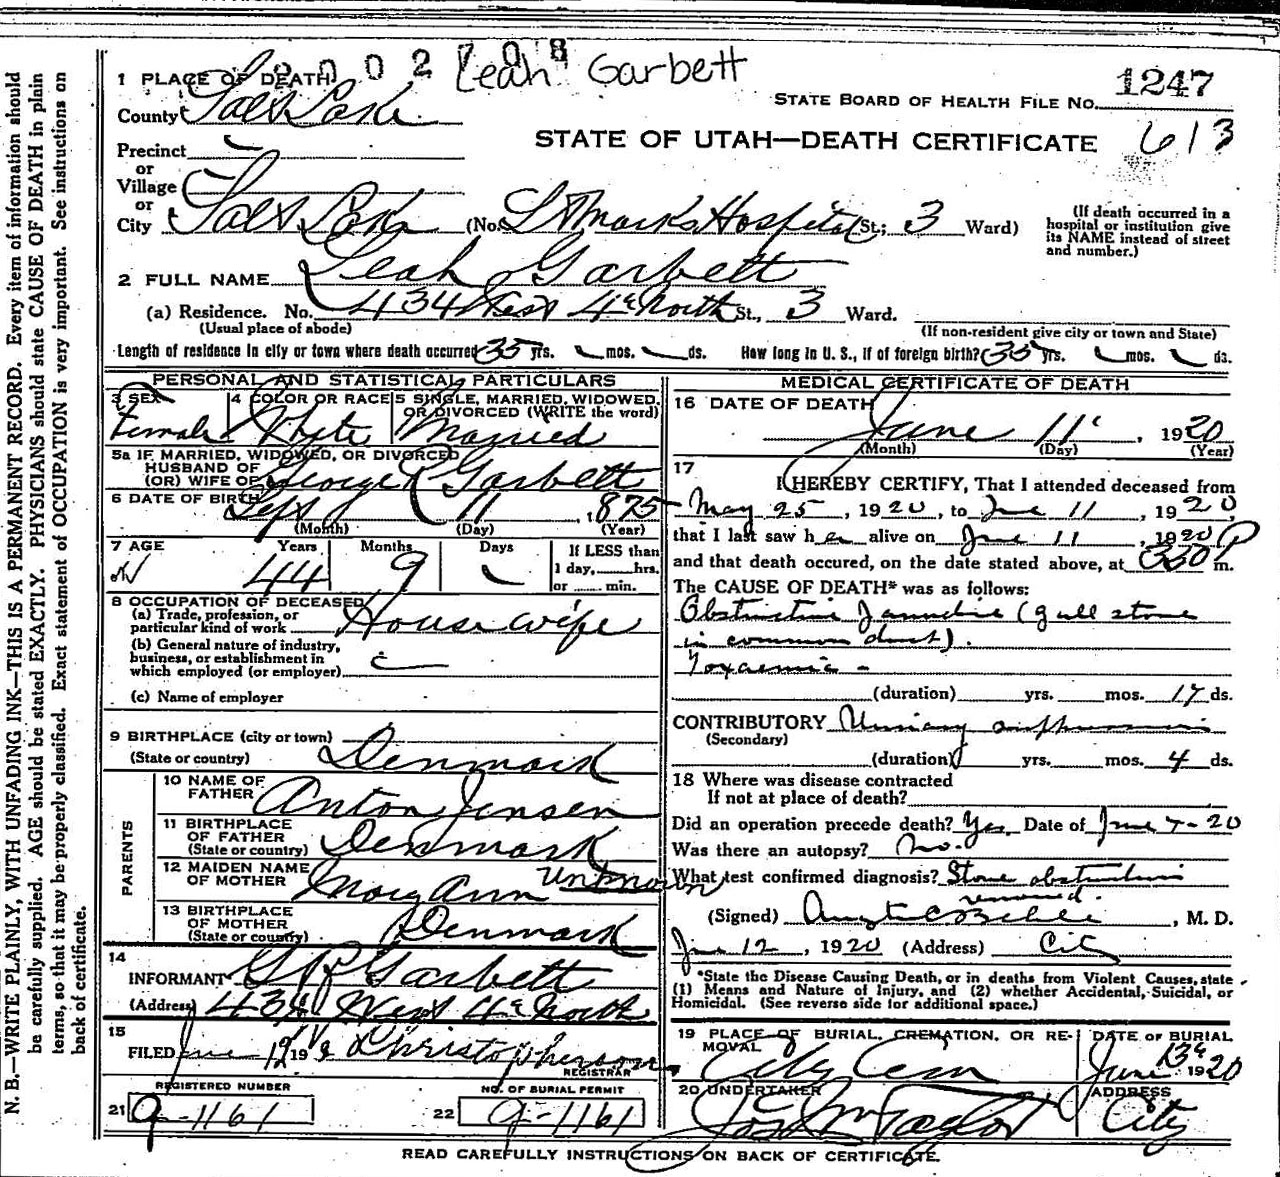 2002708 Leah Garbett
1 PLACE OF DEATH
County Salt Lake
STATE BOARD OF HEALTH FILE NO. 1247
STATE OF UTAH—DEATH CERTIFICATE 613
Precinct
or
Village
or
City Salt Lake (No. St Marks Hospital St.; 3 Ward)
(If death occurred in a hospital or institution give its NAME instead of street and number.)
2 FULL NAME Leah Garbett
(a) Residence. No. 434 West 4th North St., 3 Ward.
(Usual place of abode) (If non-resident give city or town and State)
Length of residence in city or town where death occurred 35 yrs. mos. ds. How long in U. S., if of foreign birth? 35 yrs. mos. ds.
PERSONAL AND STATISTICAL PARTICULARS
3 SEX Female
4 COLOR OR RACE White
5 SINGLE, MARRIED, WIDOWED, OR DIVORCED (WRITE the word) Married
5a IF MARRIED, WIDOWED, OR DIVORCED
HUSBAND OF
(OR) WIFE OF George R Garbett
6 DATE OF BIRTH Sept 11, 1875
(Month) (Day) (Year)
7 AGE Years 44 Months 9 Days
If LESS than 1 day, hrs. or min.
8 OCCUPATION OF DECEASED
(a) Trade, profession, or particular kind of work House wife
(b) General nature of industry, business, or establishment in which employed (or employer)
(c) Name of employer
9 BIRTHPLACE (city or town)
(State or country) Denmark
PARENTS
10 NAME OF FATHER Anton Jensen
11 BIRTHPLACE OF FATHER (State or country) Denmark
12 MAIDEN NAME OF MOTHER Mary Ann Unknown
13 BIRTHPLACE OF MOTHER (State or country) Denmark
14
INFORMANT G R Garbett
(Address) 434 West 4th North
15
FILED June 12 19 Christopherson
REGISTRAR
REGISTERED NUMBER
21 9-1161
NO. OF BURIAL PERMIT
22 9-1161
MEDICAL CERTIFICATE OF DEATH
16 DATE OF DEATH
June 11, 1920
(Month) (Day) (Year)
17
I HEREBY CERTIFY, That I attended deceased from
May 25, 1920, to June 11, 1920
that I last saw her alive on June 11, 1920
and that death occured, on the date stated above, at 350 P m.
The CAUSE OF DEATH* was as follows:
Obstructive Jaundice (gall stone
in common duct).
Toxaemia -
(duration) yrs. mos. 17 ds.
CONTRIBUTORY Urinary suppression
(Secondary)
(duration) yrs. mos. 4 ds.
18 Where was disease contracted
If not at place of death?
Did an operation precede death? Yes Date of June 7-20
Was there an autopsy? No.
What test confirmed diagnosis? Stone obstruction
removed.
(Signed) , M. D.
June 12, 1920 (Address) City
*State the Disease Causing Death, or in deaths from Violent Causes, state
(1) Means and Nature of Injury, and (2) whether Accidental, Suicidal, or
Homicidal. (See reverse side for additional space.)
19 PLACE OF BURIAL, CREMATION, OR REMOVAL City Cem
DATE OF BURIAL June 13th 1920
20 UNDERTAKER Jos Wm Taylor
ADDRESS City
READ CAREFULLY INSTRUCTIONS ON BACK OF CERTIFICATE.
N. B.—WRITE PLAINLY, WITH UNFADING INK—THIS IS A PERMANENT RECORD. Every item of information should
be carefully supplied. AGE should be stated EXACTLY. PHYSICIANS should state CAUSE OF DEATH in plain
terms, so that it may be properly classified. Exact statement of OCCUPATION is very important. See instructions on
back of certificate.